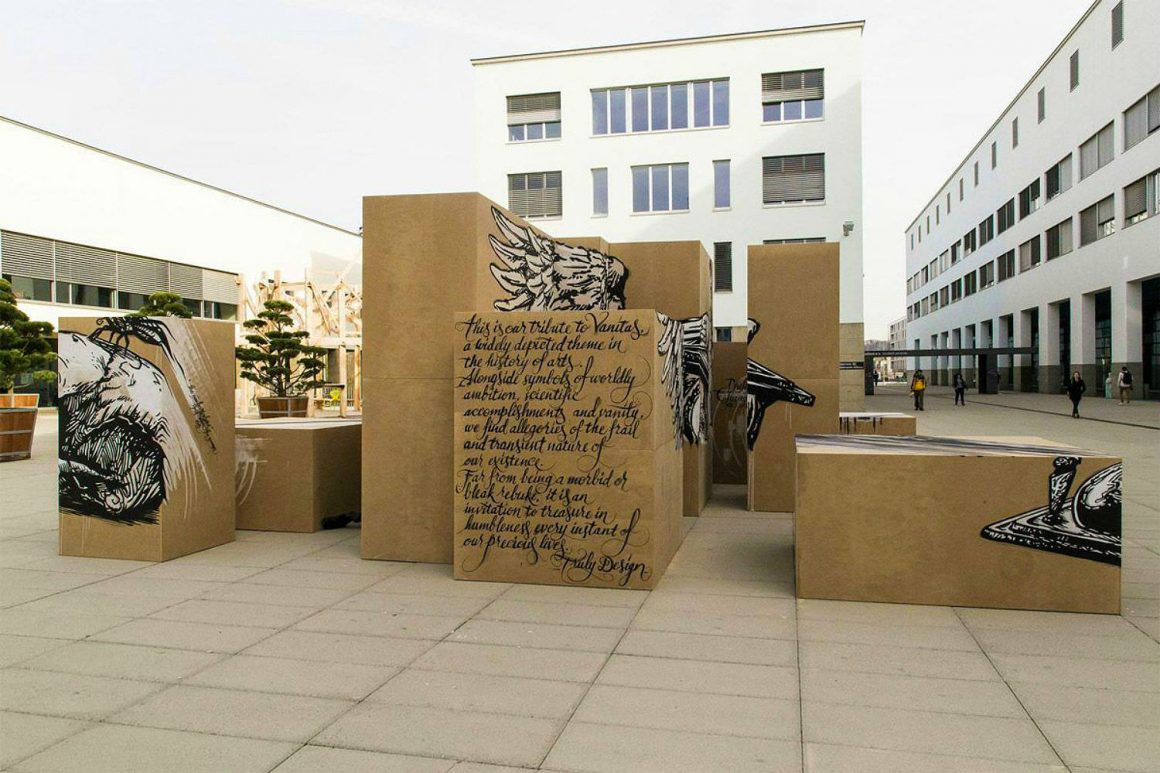 This is our tribute to Vanitas,
a widely depicted theme in
the history of arts.
Alongside symbols of worldly
ambition, scientific
accomplishments and vanity,
we find allegories of the frail
and transient nature of
our existence.
Far from being a morbid or
bleak rebuke, it is an
invitation to treasure in
humbleness every instant of
our precious lives.
Truly Design